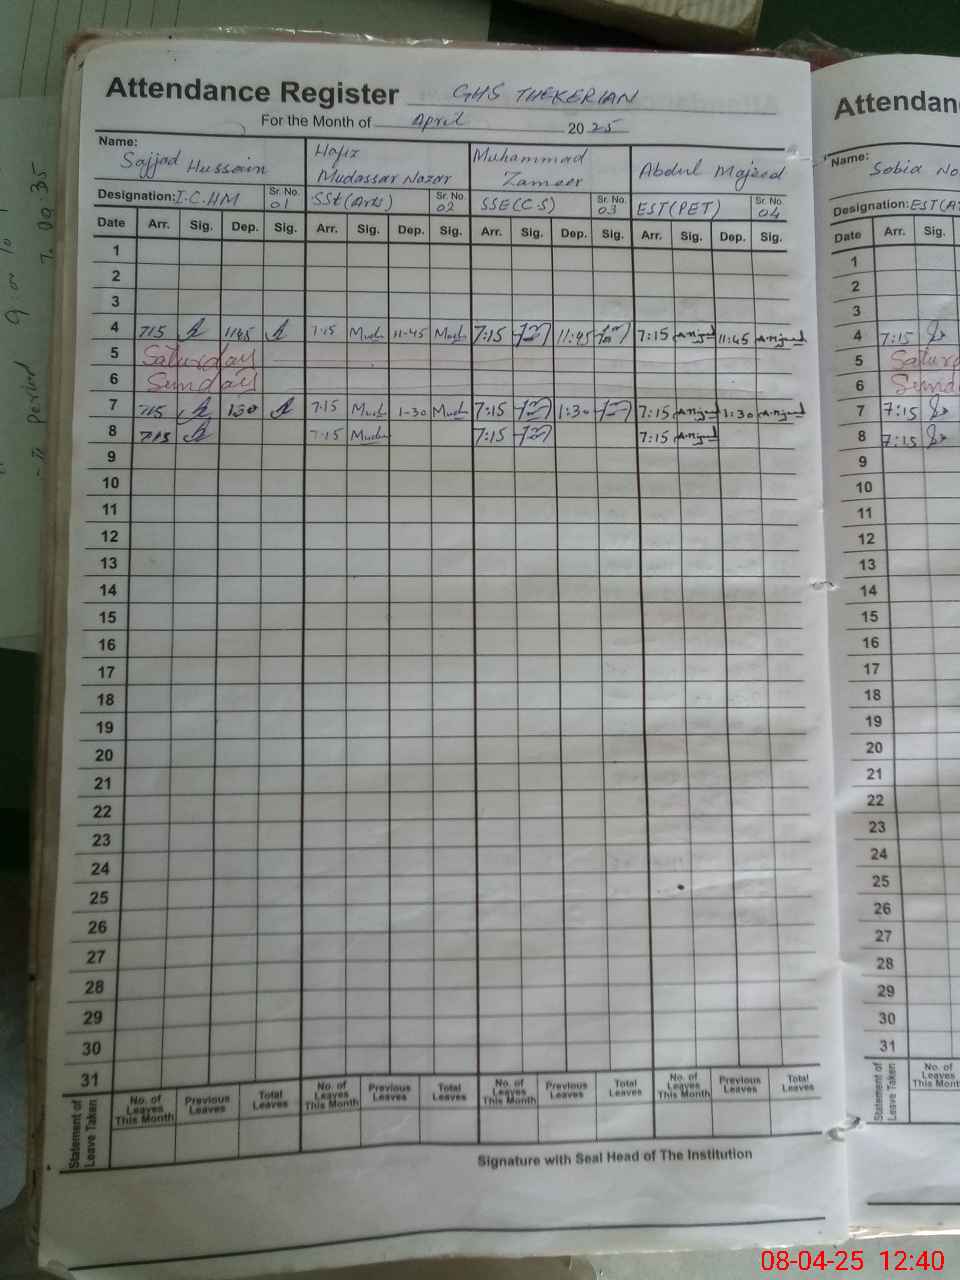 Attendance Register GHS THEKERIAN
For the Month of April 2025
Name: Sajjad Hussain Hafiz Mudassar Nazar Muhammad Zameer Abdul Majeed
Designation: I.C.HM Sr. No. 01 SSt (Arts) Sr. No. 02 SSE (C.S) Sr. No. 03 EST (PET) Sr. No. 04
Date Arr. Sig. Dep. Sig. Arr. Sig. Dep. Sig. Arr. Sig. Dep. Sig. Arr. Sig. Dep. Sig.
1
2
3
4 715 1145 7-15 11-45 7:15 11:45 7:15 11:45
5 Saturday
6 Sunday
7 715 130 7-15 1-30 7:15 1:30 7:15 1:30
8 715 7-15 7:15 7:15
9
10
11
12
13
14
15
16
17
18
19
20
21
22
23
24
25
26
27
28
29
30
31
Statement of Leave Taken No. of Leaves This Month Previous Leaves Total Leaves No. of Leaves This Month Previous Leaves Total Leaves No. of Leaves This Month Previous Leaves Total Leaves No. of Leaves This Month Previous Leaves Total Leaves
Signature with Seal Head of The Institution
Attendan
Name: Sobia No
Designation: EST (A
Date Arr. Sig.
1
2
3
4 7:15
5 Satur
6 Sund
7 7:15
8 7:15
9
10
11
12
13
14
15
16
17
18
19
20
21
22
23
24
25
26
27
28
29
30
31
Statement of Leave Taken No. of Leaves This Month
period
08-04-25 12:40